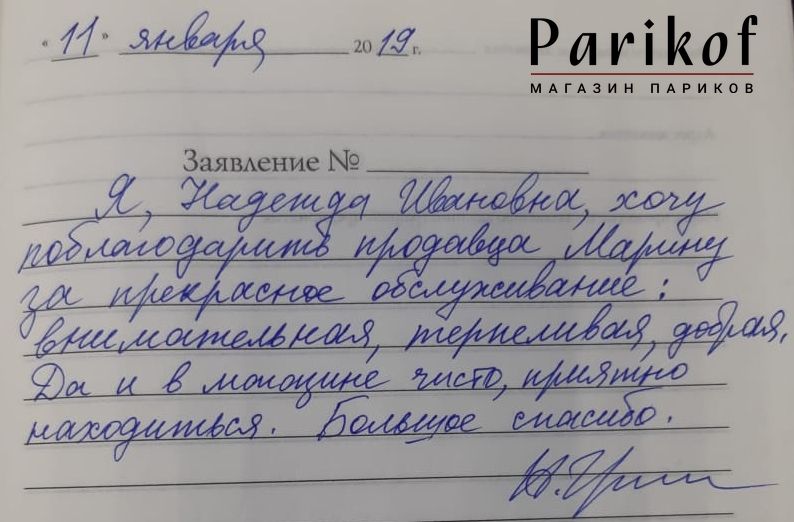 « 11 » января 2019 г.
Parikof
МАГАЗИН ПАРИКОВ
Заявление №
Я, Надежда Ивановна, хочу
поблагодарить продавца Марину
за прекрасное обслуживание:
внимательная, терпеливая, добрая.
Да и в магазине чисто, приятно
находиться. Большое спасибо.